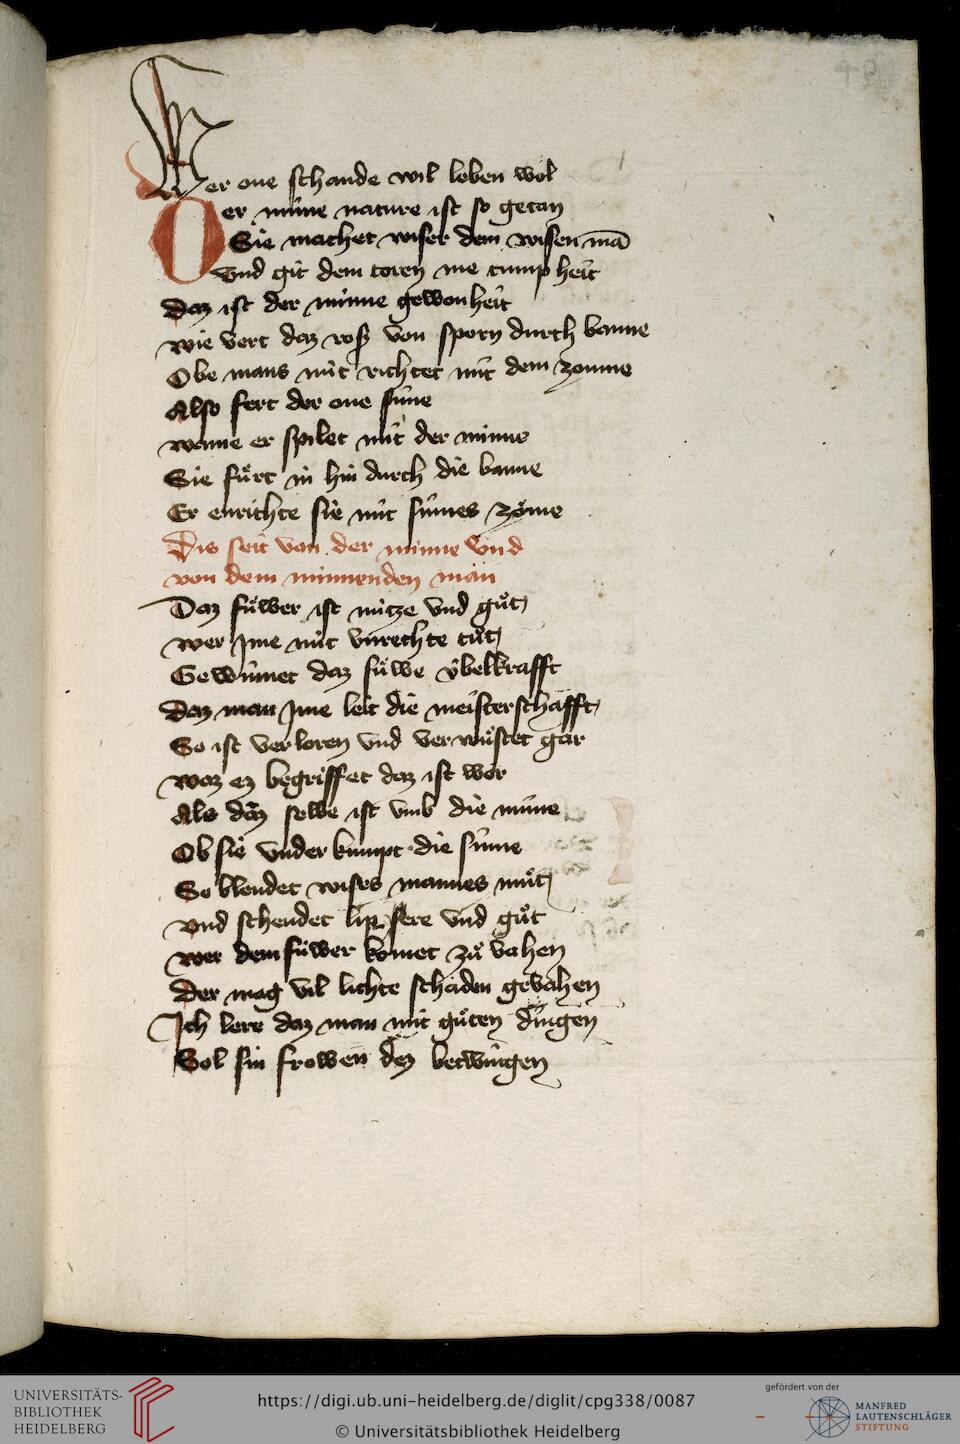 40
Wer one schande wil leben wol
Der minne nature ist so getan
Sie machet wiser dem wisen mā
Vnd git dem toren me tump heit
Daz ist der minne gewonheit
wie vert daz roß von sporn durch banne
Obe mans nit richtet mit dem zoume
Also fert der one sinne
wanne er spilet mit der minne
Sie fuͤrt in hin durch die banne
Er enrichte sie mit sinnes zoͤme
Dis seit von der minne vnd
von dem minnenden man
Daz fuͤwer ist nutze vnd guͦt
wer Jme mit vnrechte tuͦt
Gewinnet daz fuͤwe vbelkrafft
Daz man Jme leit die meisterschafft
So ist verloren vnd verwuͤstet gar
waz ez begriffet daz ist wor
Als daz selbe ist vmb die minne
Ob sie vnderkumpt die sinne
So blendet wises mannes muͦt
vnd schendet lip sere vnd guͦt
wer dem fuͤwer komet zuͦ nahen
Der mag vil lichte schaden gevahen
Jch lere daz man mit guͦten dingen
Sol sin frowen dez betwingen
UNIVERSITÄTS-
BIBLIOTHEK
HEIDELBERG
https://digi.ub.uni-heidelberg.de/diglit/cpg338/0087
© Universitätsbibliothek Heidelberg
gefördert von der
MANFRED
LAUTENSCHLÄGER
STIFTUNG